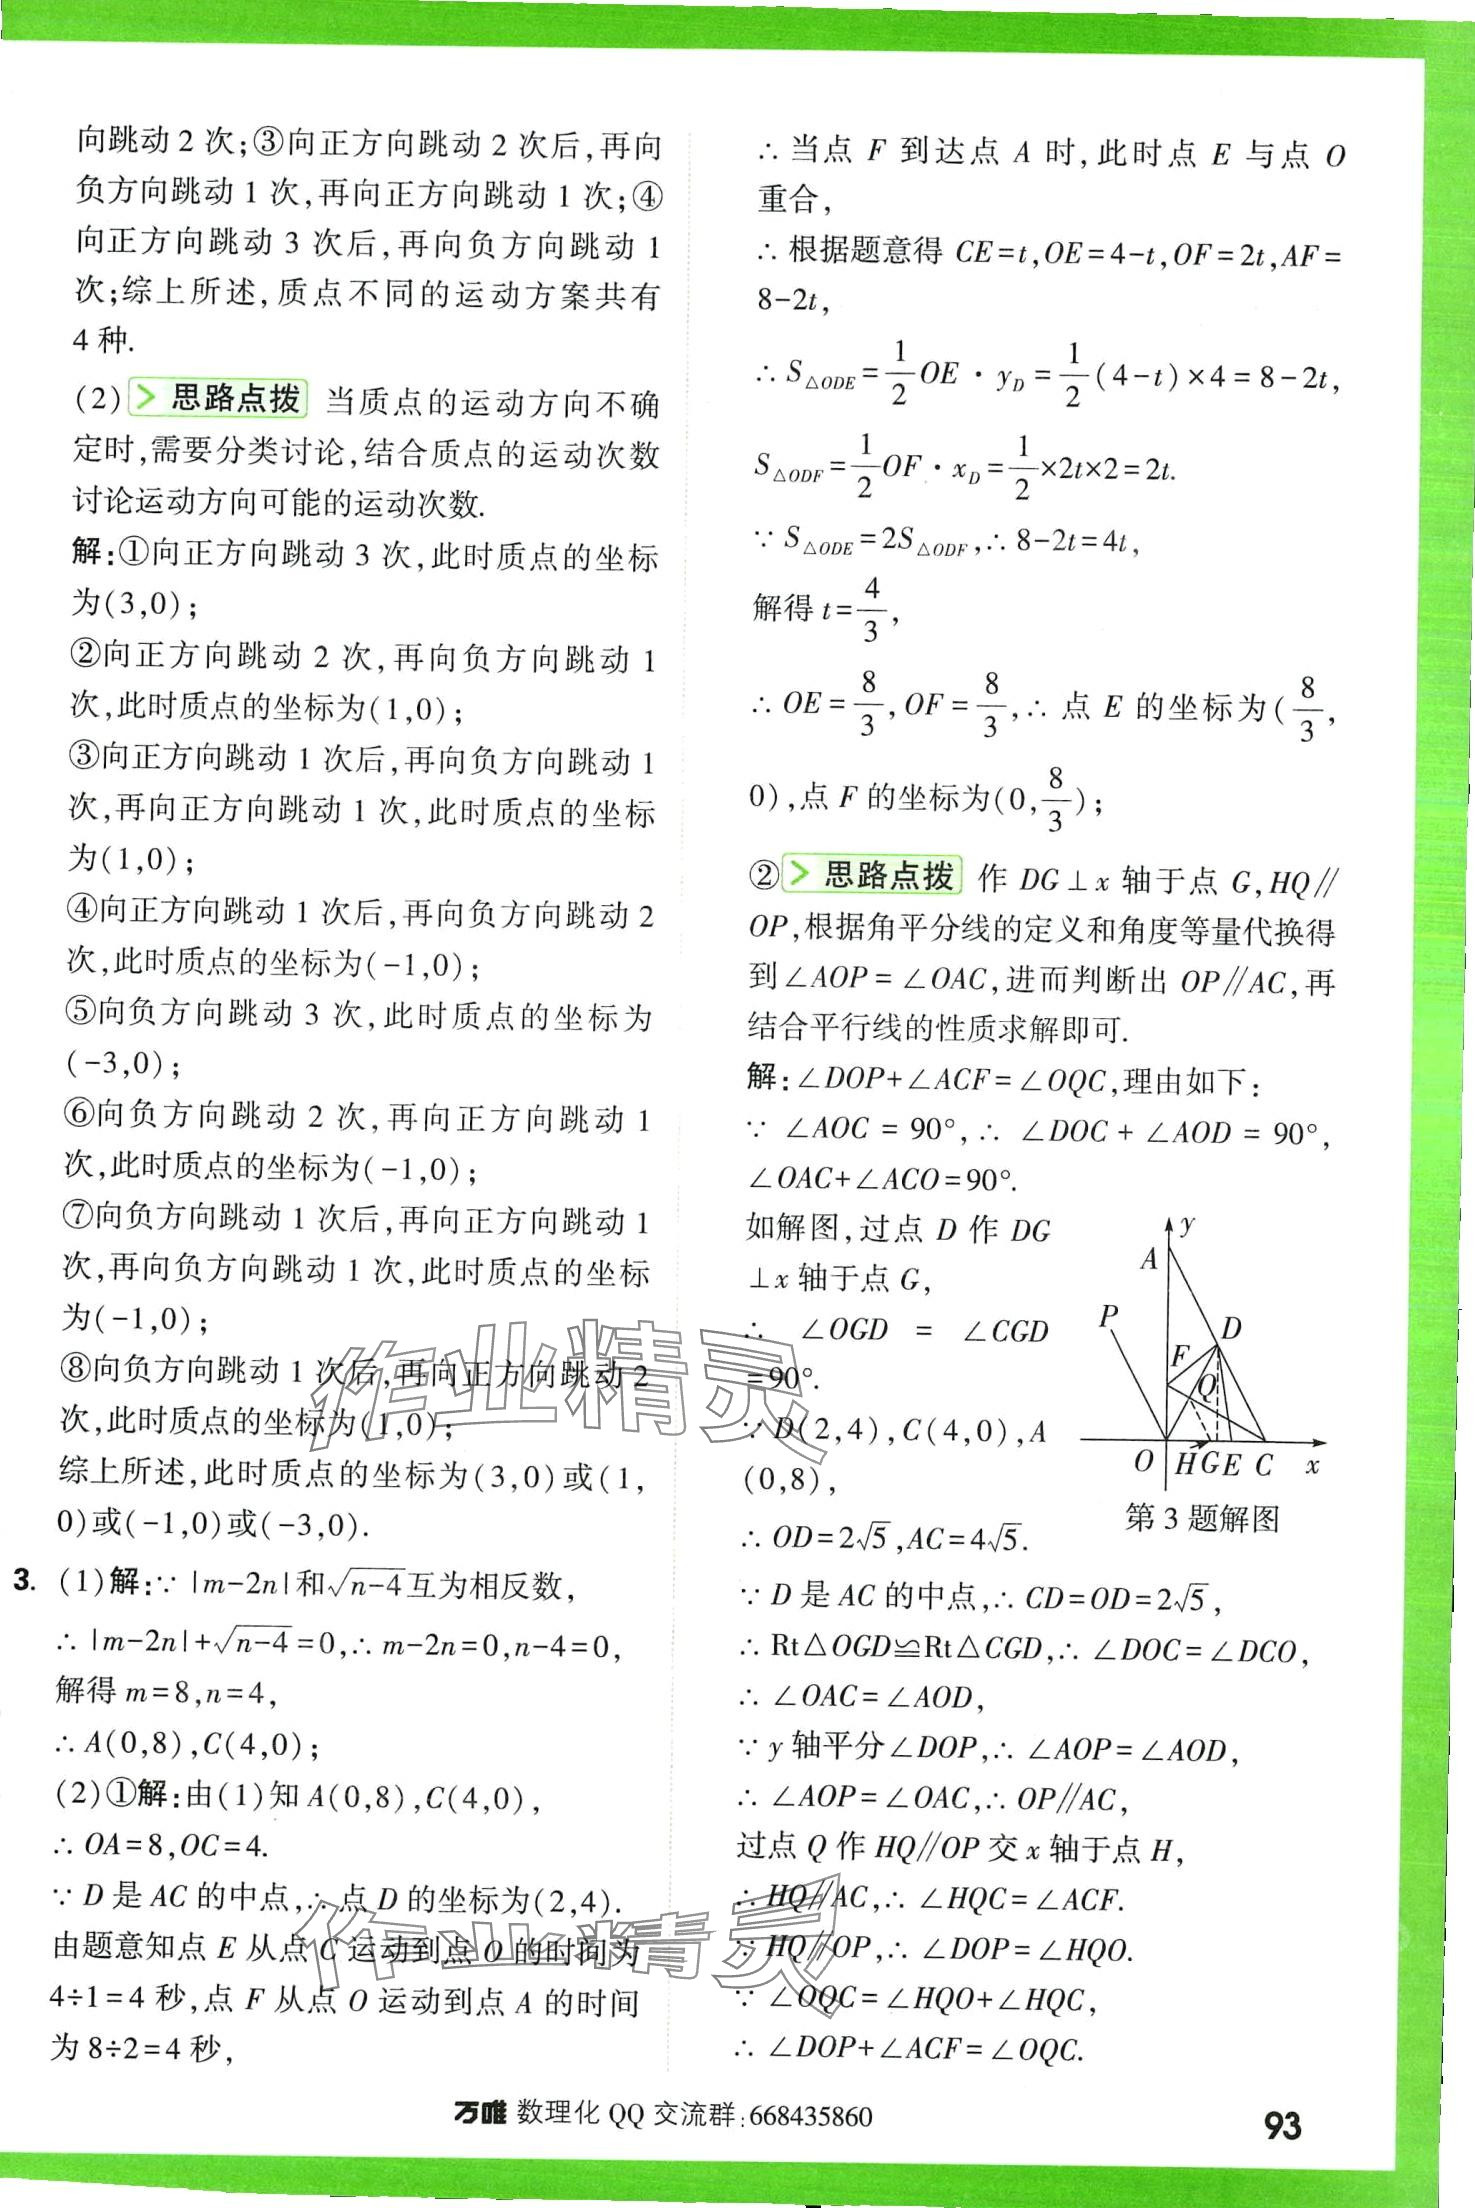 向跳动2次;③向正方向跳动2次后,再向
负方向跳动1次,再向正方向跳动1次;④
向正方向跳动3次后,再向负方向跳动1
次;综上所述,质点不同的运动方案共有
4种.
(2) > 思路点拨 当质点的运动方向不确
定时,需要分类讨论,结合质点的运动次数
讨论运动方向可能的运动次数.
解:①向正方向跳动3次,此时质点的坐标
为(3,0);
②向正方向跳动2次,再向负方向跳动1
次,此时质点的坐标为(1,0);
③向正方向跳动1次后,再向负方向跳动1
次,再向正方向跳动1次,此时质点的坐标
为(1,0);
④向正方向跳动1次后,再向负方向跳动2
次,此时质点的坐标为(-1,0);
⑤向负方向跳动3次,此时质点的坐标为
(-3,0);
⑥向负方向跳动2次,再向正方向跳动1
次,此时质点的坐标为(-1,0);
⑦向负方向跳动1次后,再向正方向跳动1
次,再向负方向跳动1次,此时质点的坐标
为(-1,0);
⑧向负方向跳动1次后,再向正方向跳动2
次,此时质点的坐标为(1,0);
综上所述,此时质点的坐标为(3,0)或(1,
0)或(-1,0)或(-3,0).
3. (1)解:∵|m-2n|和√(n-4)互为相反数,
∴|m-2n|+√(n-4)=0,∴m-2n=0,n-4=0,
解得m=8,n=4,
∴A(0,8),C(4,0);
(2)①解:由(1)知A(0,8),C(4,0),
∴OA=8,OC=4.
∵D是AC的中点,∴点D的坐标为(2,4).
由题意知点E从点C运动到点O的时间为
4÷1=4秒,点F从点O运动到点A的时间
为8÷2=4秒,
∴当点F到达点A时,此时点E与点O
重合,
∴根据题意得CE=t,OE=4-t,OF=2t,AF=
8-2t,
∴S△ODE=1/2OE·yD=1/2(4-t)×4=8-2t,
S△ODF=1/2OF·xD=1/2×2t×2=2t.
∵S△ODE=2S△ODF,∴8-2t=4t,
解得t=4/3,
∴OE=8/3,OF=8/3,∴点E的坐标为(8/3,
0),点F的坐标为(0,8/3);
② > 思路点拨 作DG⊥x轴于点G,HQ∥
OP,根据角平分线的定义和角度等量代换得
到∠AOP=∠OAC,进而判断出OP∥AC,再
结合平行线的性质求解即可.
解:∠DOP+∠ACF=∠OQC,理由如下:
∵∠AOC=90°,∴∠DOC+∠AOD=90°,
∠OAC+∠ACO=90°.
如解图,过点D作DG
⊥x轴于点G,
∴∠OGD=∠CGD
=90°.
∵D(2,4),C(4,0),A
(0,8),
y
A
P
D
F
Q
O H G E C x
第3题解图
∴OD=2√5,AC=4√5.
∵D是AC的中点,∴CD=OD=2√5,
∴Rt△OGD≌Rt△CGD,∴∠DOC=∠DCO,
∴∠OAC=∠AOD,
∵y轴平分∠DOP,∴∠AOP=∠AOD,
∴∠AOP=∠OAC,∴OP∥AC,
过点Q作HQ∥OP交x轴于点H,
∴HQ∥AC,∴∠HQC=∠ACF.
∵HQ∥OP,∴∠DOP=∠HQO.
∵∠OQC=∠HQO+∠HQC,
∴∠DOP+∠ACF=∠OQC.
作业精灵
作业精灵
万唯 数理化QQ交流群:668435860
93